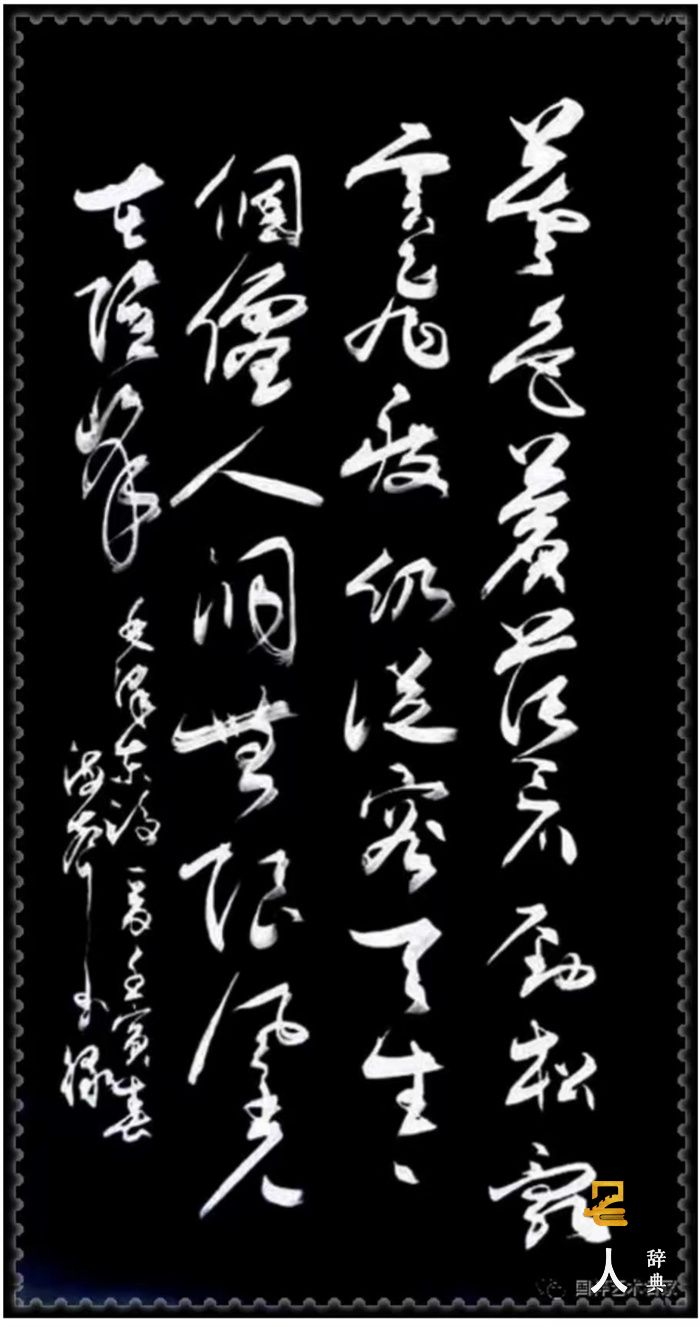 暮色蒼茫看劲松亂
雲飛渡仍從容天生一
個僊人洞無限風光
在險峰
毛澤東詩一首壬寅春
人
辞典